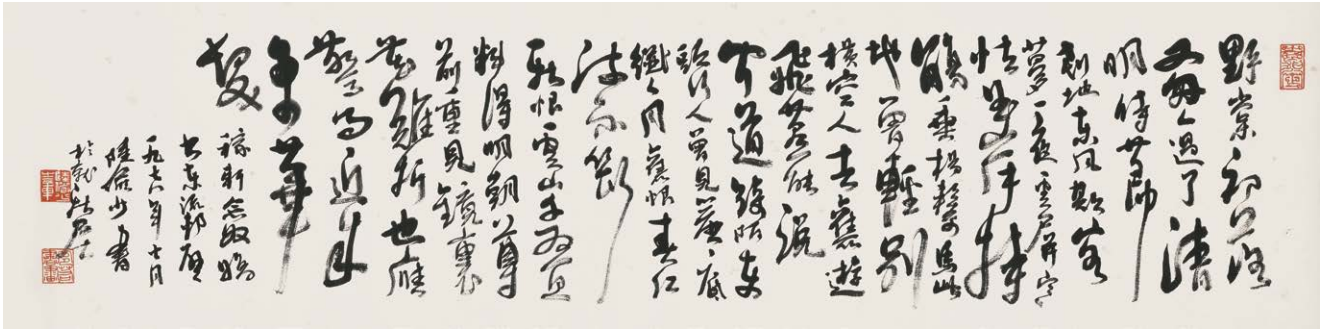 野棠花落
又匆匆過了清
明時節
剗地東風欺客
夢一夜雲屏寒
怯曲岸持
觴垂楊繫馬此
地曾輕別
樓空人去舊遊
飛燕能說
聞道綺陌東
頭行人曾見簾底
纖纖月舊恨春江
流不斷
新恨雲山千疊
料得明朝尊
前重見鏡裏
花難折也應
驚問近來
多少華
髮
稼軒念奴嬌
書東流村壁
一九七六年七月
陸儼少書
於